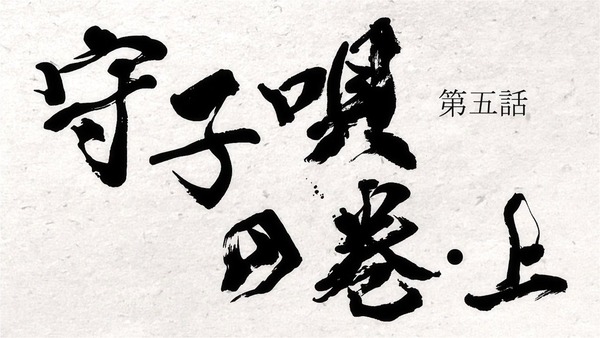 第五話
守子唄
の巻・上